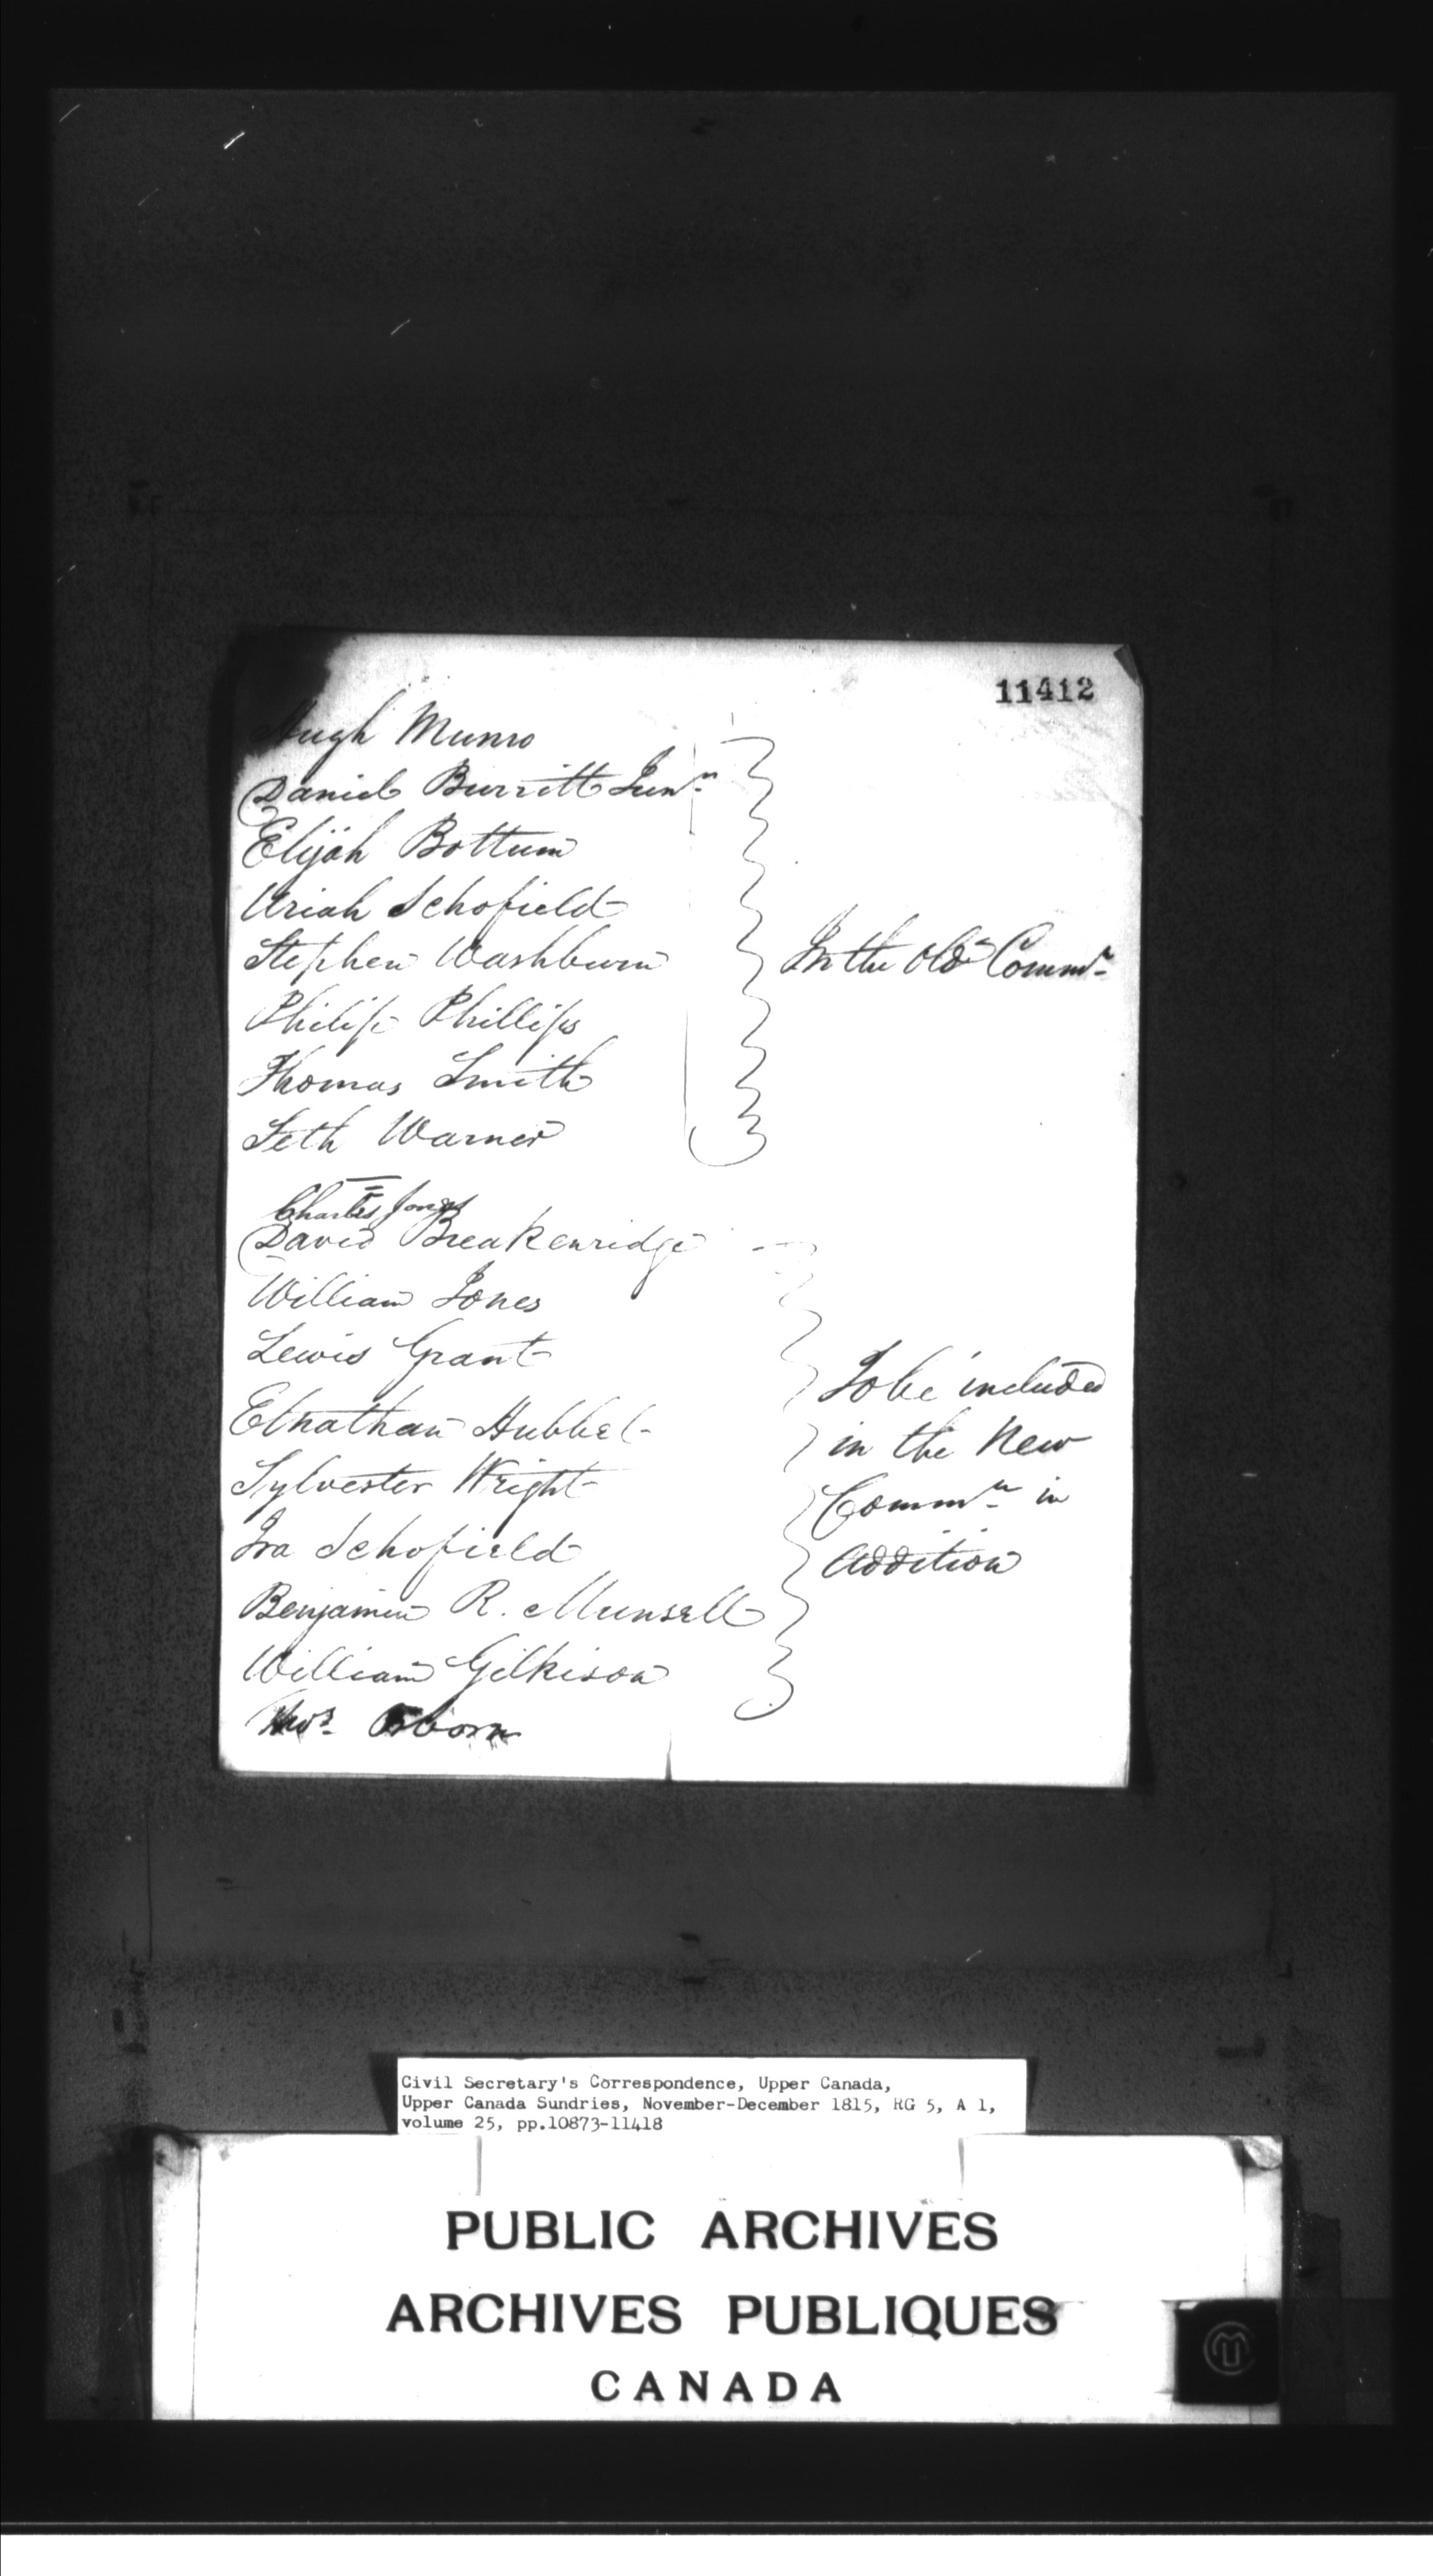 11412
Hugh Munro
Daniel Burritt Junr
Elijah Bottum
Uriah Schofield
Stephen Washburn
In the old Commn
Philip Phillips
Thomas Smith
Seth Warner
Charles Jones
David Breakenridge
William Jones
Lewis Grant
To be included
Elnathan Hubbel
in the New
Sylvester Wright
Commn in
Ira Schofield
addition
Benjamin R. Munsell
William Gilkison
Thos. Osborn
Civil Secretary's Correspondence, Upper Canada,
Upper Canada Sundries, November-December 1815, RG 5, A 1,
volume 25, pp.10873-11418
PUBLIC ARCHIVES
ARCHIVES PUBLIQUES
CANADA